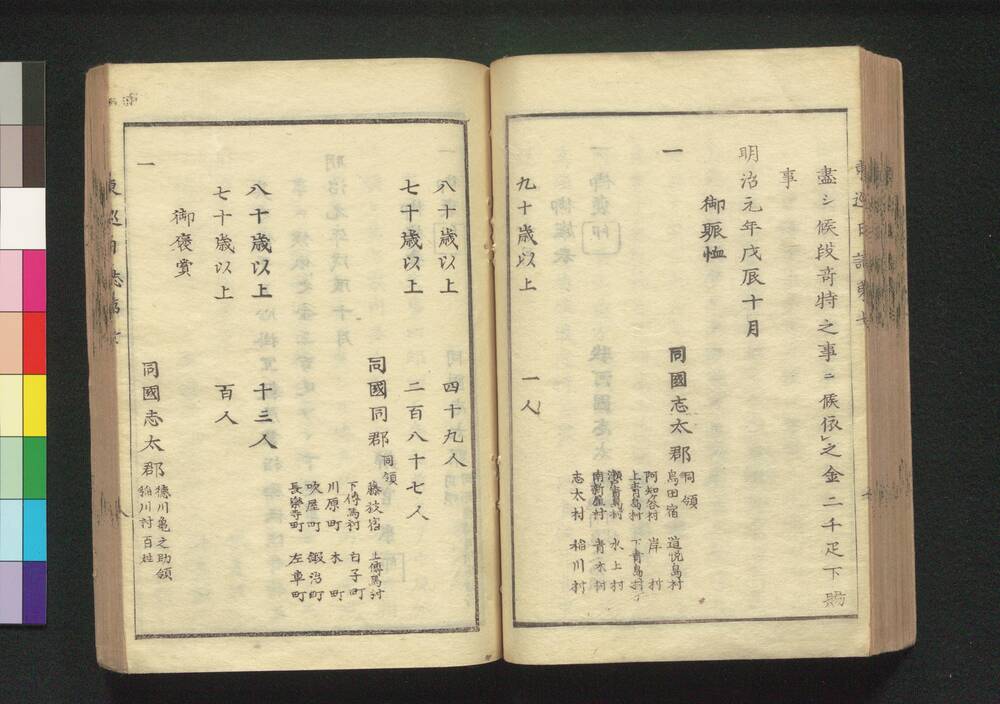 盡シ候段奇特之事ニ候依之金二千疋下賜
事
明治元年戊辰十月
御賑恤
一
同國志太郡
同領
島田宿 道悦島村
阿知谷村 岸村
上青島村 下青島村
瀬古村 水上村
南新屋村 青木村
志太村 稲川村
九十歳以上 一人
八十歳以上 四十九人
七十歳以上 二百八十七人
同國同郡
同領
藤枝宿 上傳馬村
下傳馬村 白子町
川原町 木町
吹屋町 鍛冶町
長樂寺町 左車町
八十歳以上 十三人
七十歳以上 百人
御褒賞
一
同國志太郡
德川亀之助領
稲川村百姓